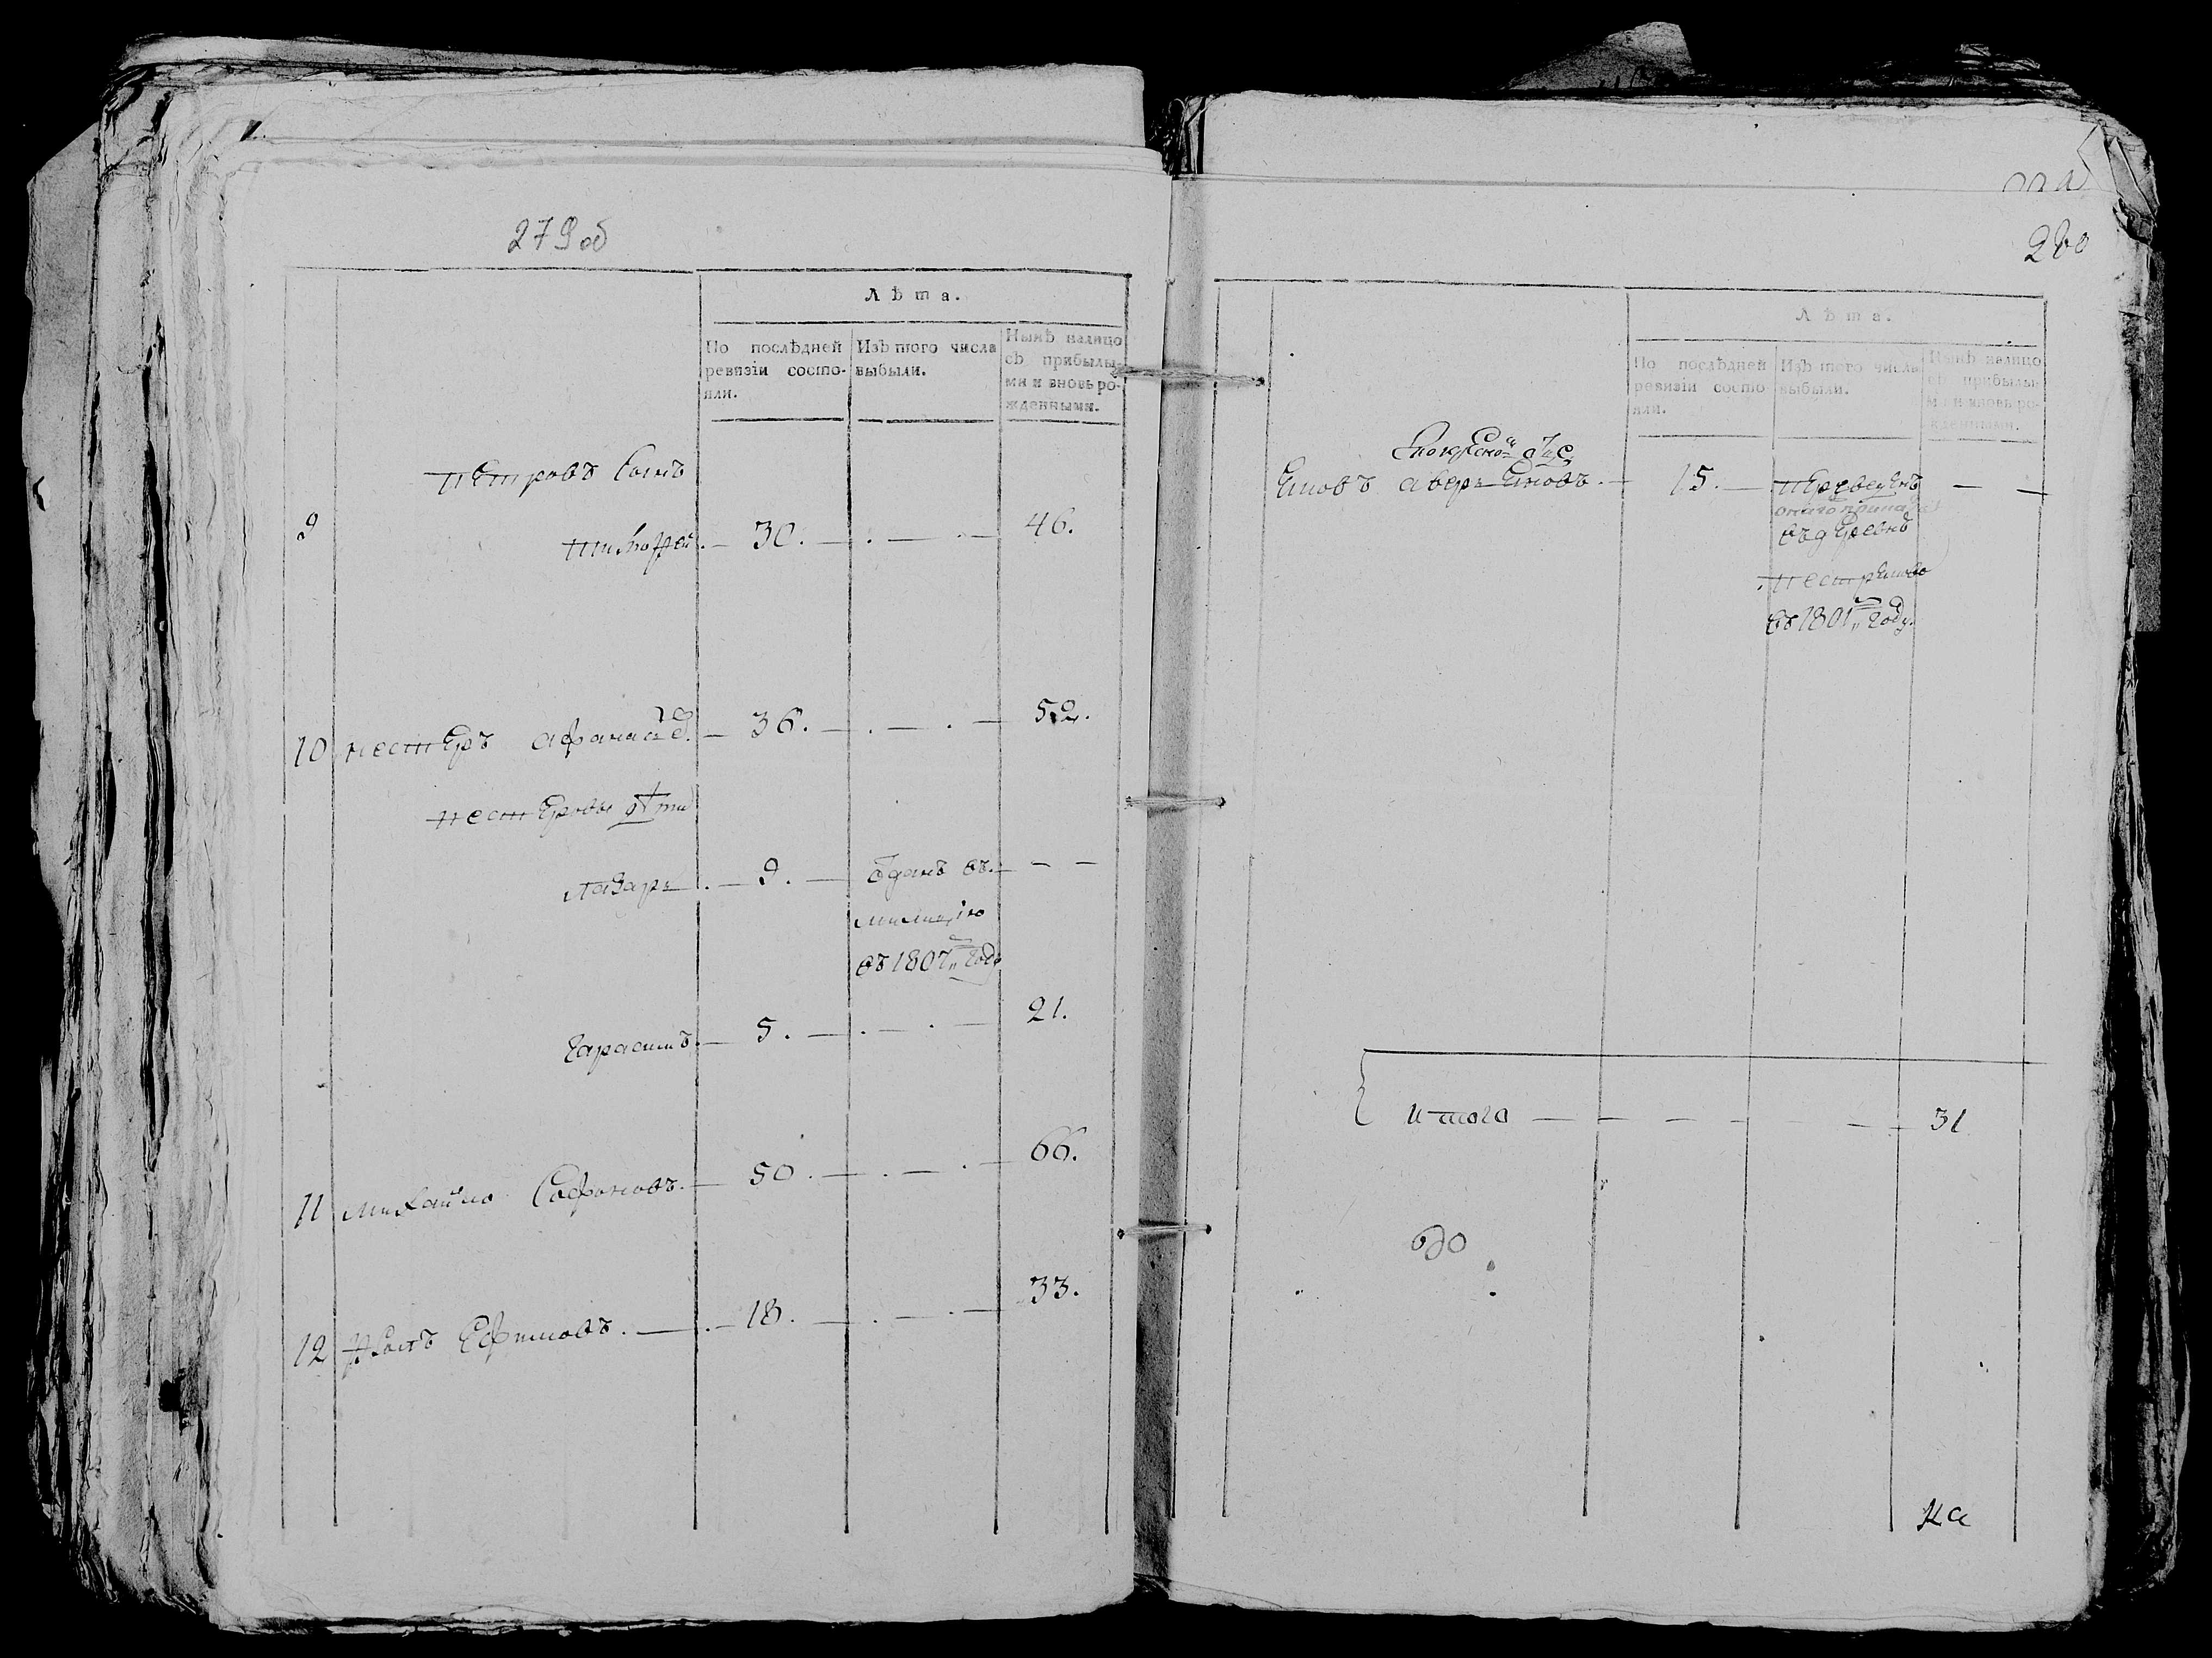 279 об
Лѣта.
По послѣдней ревизіи состояли.
Изъ того числа выбыли.
Нынѣ налицо съ прибылыми и вновь рожденными.
Петровъ сынъ
9 Тимофей. — 30. — . — . — 46.
10 Нестеръ Афанасьев. — 36. — . — . — 52.
Нестеровы дѣти
Лазарь . — 9. — Отданъ въ — —
милицію
въ 1807м году
Гарасимъ. — 5. — . — . — 21.
11 Михайло Софоновъ. — 50. — . — . — 66.
12 Ефимовъ. — . — 18. — . — . — 33.
280
Лѣта.
По послѣдней ревизіи состояли.
Изъ того числа выбыли.
Нынѣ налицо съ прибылыми и вновь рожденными.
Аверьяновъ. — 15. — переведенъ — —
въ деревню
въ 1801м году.
Итого — — — — — — 31
на